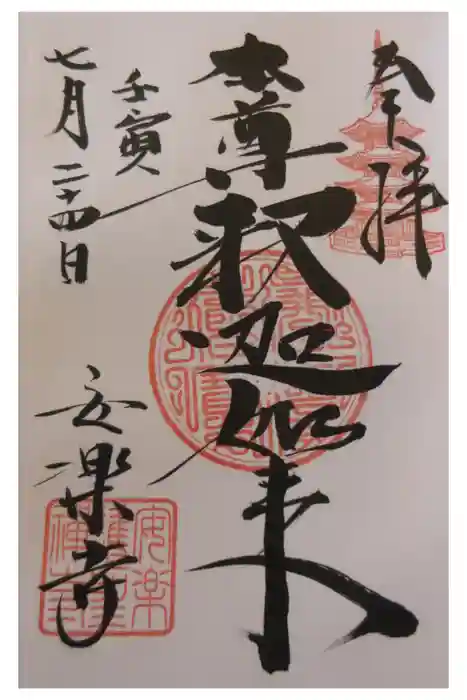 奉拝
本尊釈迦如来
壬寅
七月二十四日
安楽寺